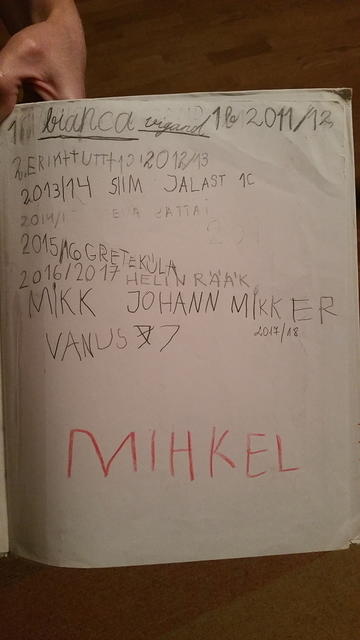 1 bianca vigand 1b 2011/12
2. 2012/13
2013/14 SIIM JALAST 1C
2014/1
2015/16 GRETE KÜLA
2016/2017 HELIN RÄÄK
MIKK JOHANN MIKKER
2017/18
VANUS 7
MIHKEL